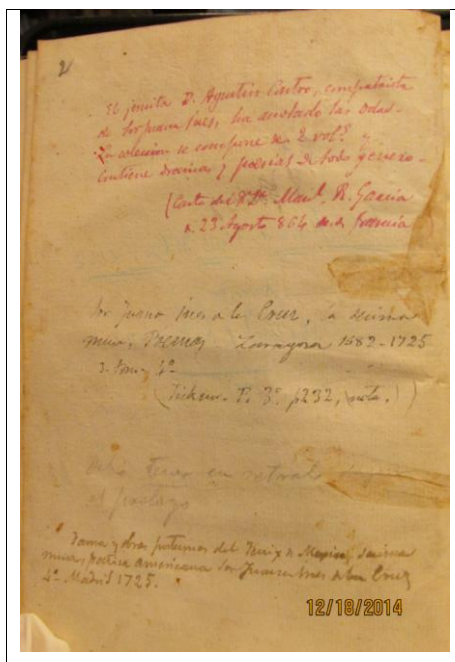 2
El jesuita D. Agustin Castro, compatriota
de Sor Juana Ines, ha anotado las Odas.
La coleccion se compone de 2 vols y
contiene drama y poesias de todo género.
(Carta del Dr. Manl. R. Garcia
a. 23 Agosto 864 Francia
Sor Juana Ines de la Cruz, la décima
musa, Poemas Zaragoza 1682-1725
3 tom. 4º
(Ticknor T. 3º p232, nota.)
tener un retrato
el prologo
Fama y obras postumas del Fenix de Mexico, decima
musa, poetisa americana Sor Juana Ines de la Cruz
4º Madrid 1725.
12/18/2014